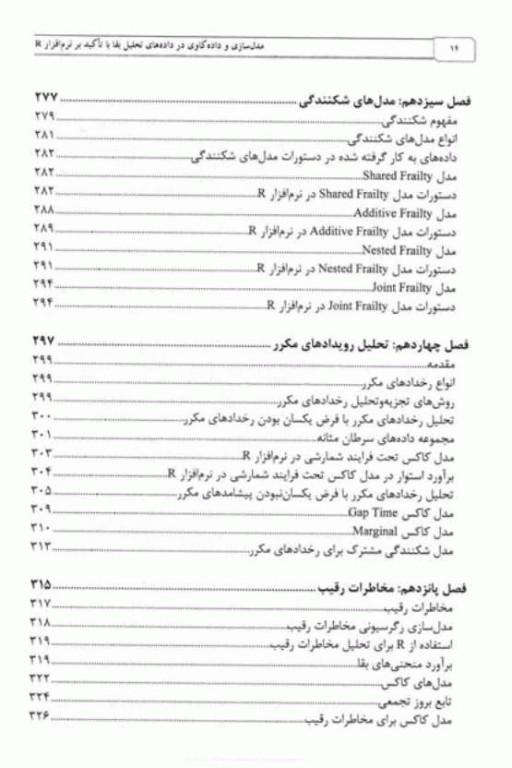 ۱۶ مدل‌سازی و داده‌کاوی در داده‌های تحلیل بقا با تأکید بر نرم‌افزار R
فصل سیزدهم: مدل‌های شکنندگی ۲۷۷
مفهوم شکنندگی ۲۷۹
انواع مدل‌های شکنندگی ۲۸۱
داده‌های به کار گرفته شده در دستورات مدل‌های شکنندگی ۲۸۲
مدل Shared Frailty ۲۸۲
دستورات مدل Shared Frailty در نرم‌افزار R ۲۸۲
مدل Additive Frailty ۲۸۸
دستورات مدل Additive Frailty در نرم‌افزار R ۲۸۹
مدل Nested Frailty ۲۹۱
دستورات مدل Nested Frailty در نرم‌افزار R ۲۹۱
مدل Joint Frailty ۲۹۴
دستورات مدل Joint Frailty در نرم‌افزار R ۲۹۴
فصل چهاردهم: تحلیل رویدادهای مکرر ۲۹۷
مقدمه ۲۹۹
انواع رخدادهای مکرر ۲۹۹
روش‌های تجزیه‌وتحلیل رخدادهای مکرر ۲۹۹
تحلیل رخدادهای مکرر با فرض یکسان بودن رخدادهای مکرر ۳۰۰
مجموعه داده‌های سرطان مثانه ۳۰۱
مدل کاکس تحت فرایند شمارشی در نرم‌افزار R ۳۰۳
برآورد استوار در مدل کاکس تحت فرایند شمارشی در نرم‌افزار R ۳۰۴
تحلیل رخدادهای مکرر با فرض یکسان‌نبودن پیشامدهای مکرر ۳۰۵
مدل کاکس Gap Time ۳۰۹
مدل کاکس Marginal ۳۱۰
مدل شکنندگی مشترک برای رخدادهای مکرر ۳۱۳
فصل پانزدهم: مخاطرات رقیب ۳۱۵
مخاطرات رقیب ۳۱۷
مدل‌سازی رگرسیونی مخاطرات رقیب ۳۱۸
استفاده از R برای تحلیل مخاطرات رقیب ۳۱۹
برآورد منحنی‌های بقا ۳۱۹
مدل‌های کاکس ۳۲۲
تابع بروز تجمعی ۳۲۴
مدل کاکس برای مخاطرات رقیب ۳۲۶